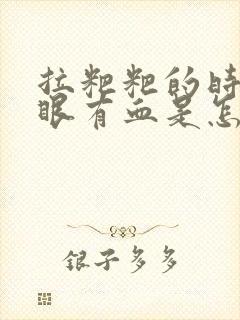 拉粑粑的时
眼有血是怎
银子多多